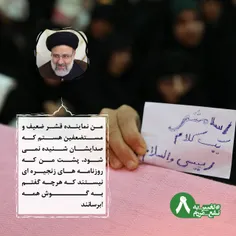 من نماینده قشر ضعیف و
مستضعفین هستم که
صدایشان شنیده نمی
شود، پشت من که
روزنامه های زنجیره ای
نیستند که هرچه گفتم
به گوش همه
برسانند!
یک کلام
رییسی والسلام